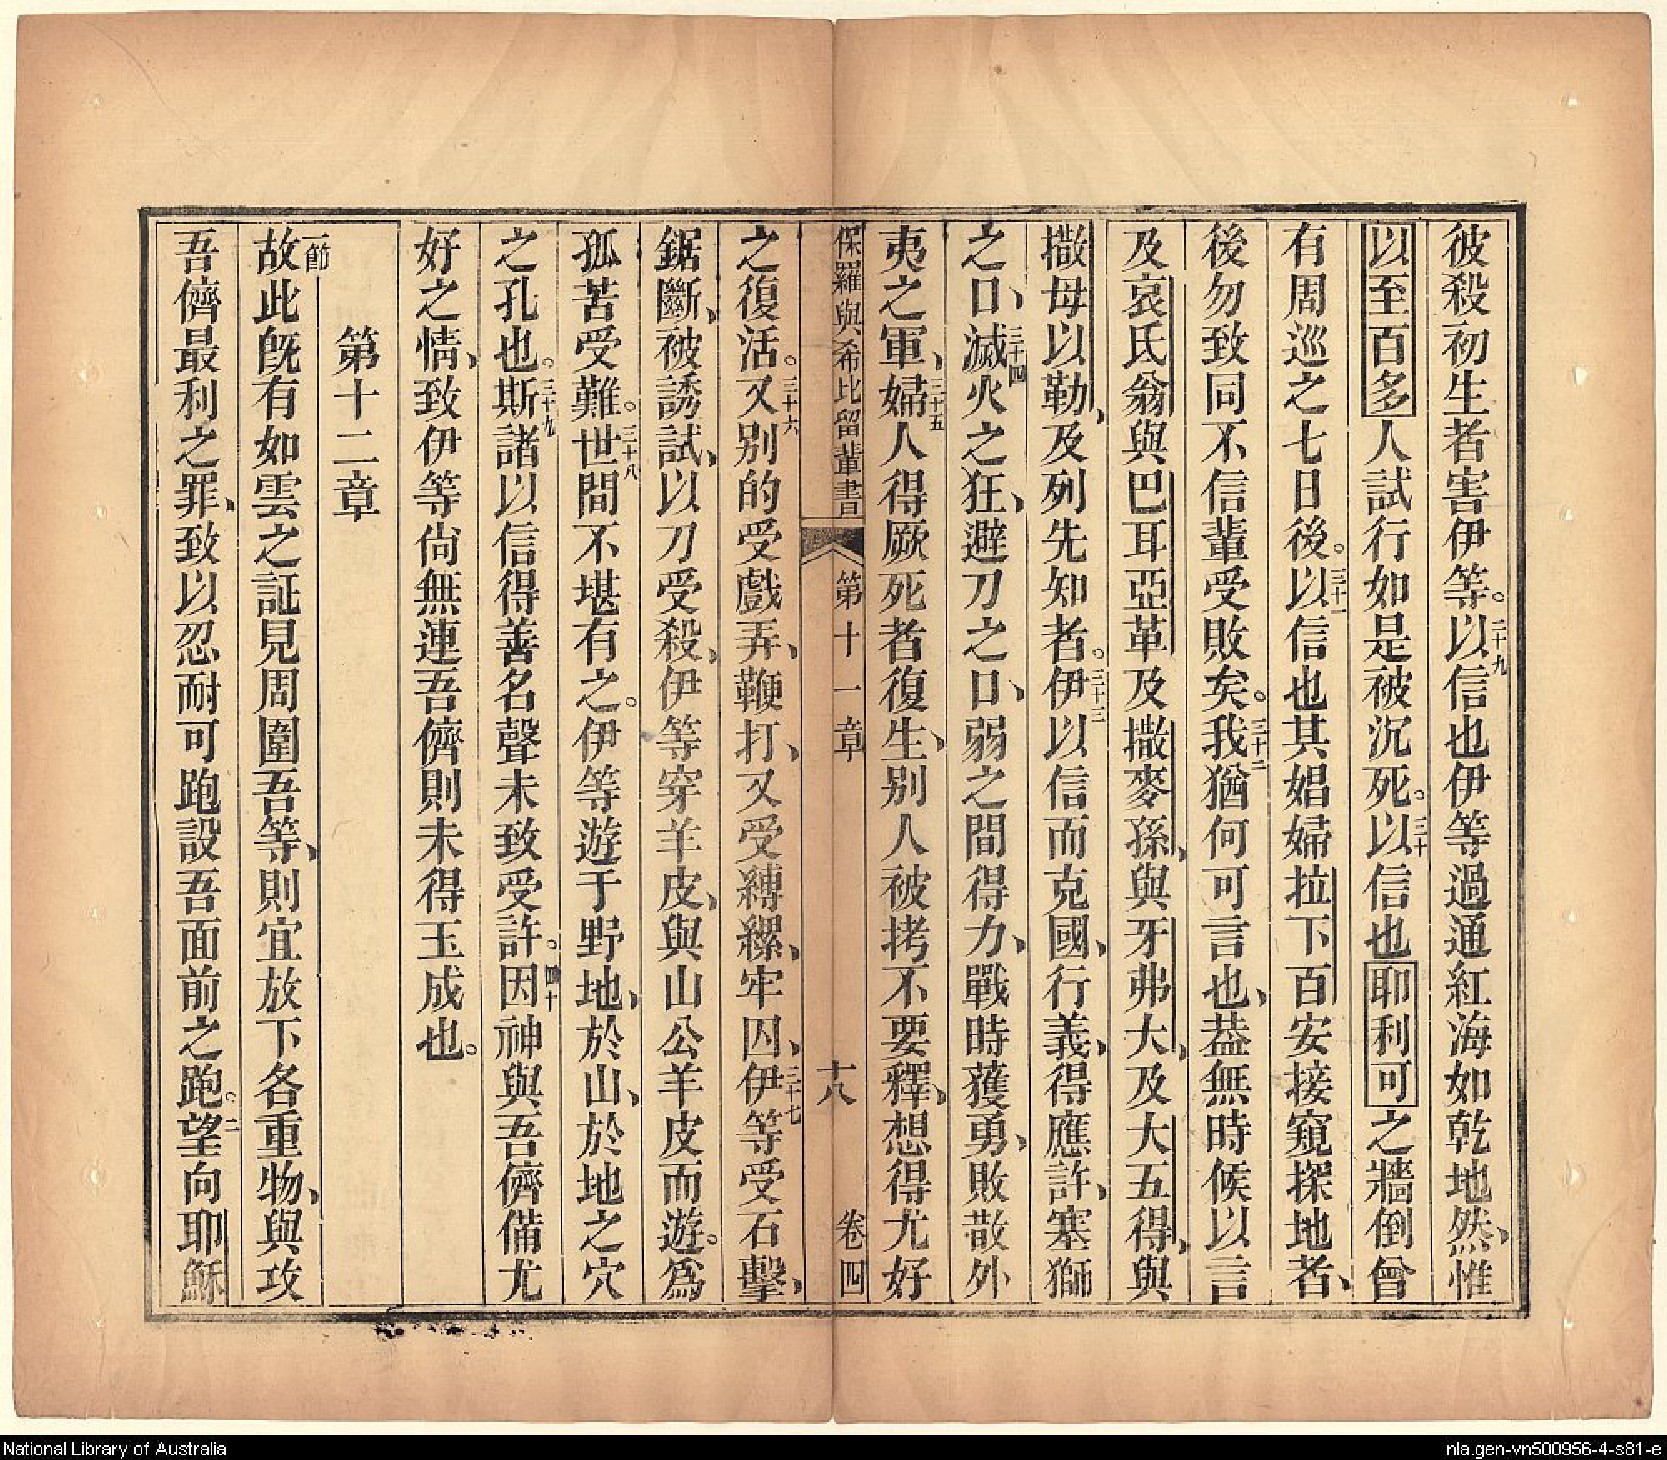 彼殺初生者害伊等。二十九以信也伊等過通紅海如乾地然、惟
以至百多人試行如是被沉死。三十以信也耶利可之牆倒曾
有周巡之七日後。三十一以信也其娼婦拉下百安接窺探地者、
後勿致同不信輩受敗矣。三十二我猶何可言也、葢無時候以言
及哀氏翁與巴耳亞革及撒麥孫、與牙弗大、及大五得、與
撒母以勒、及列先知者。三十三伊以信而克國、行義、得應許、塞獅
之口、三十四滅火之狂、避刀之口、弱之間得力、戰時獲勇、敗散外
夷之軍、三十五婦人得厥死者復生、別人被拷不要釋、想得尤好
保羅與希比留輩書 第十一章 十八 卷四
之復活。三十六又別的受戲弄、鞭打、又受縛縲、牢囚、三十七伊等受石擊、
鋸斷、被誘試、以刀受殺、伊等穿羊皮、與山公羊皮而遊。爲
孤苦受難。三十八世間不堪有之。伊等遊于野地、於山、於地之穴
之孔也。三十九斯諸以信得善名聲未致受許。四十因神與吾儕備尤
好之情、致伊等尙無連吾儕則未得玉成也。
第十二章
一節故此旣有如雲之証見周圍吾等、則宜放下各重物、與攻
吾儕最利之罪、致以忍耐可跑設吾面前之跑。二望向耶穌
National Library of Australia
nla.gen-vn500956-4-s81-e